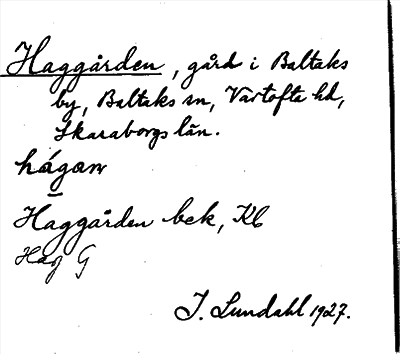 Haggården, gård i Baltaks
by, Baltaks sn, Vartofta hd,
Skaraborgs län.
hágαn
Haggården bek, Kb
Hag G
I. Lundahl 1927.